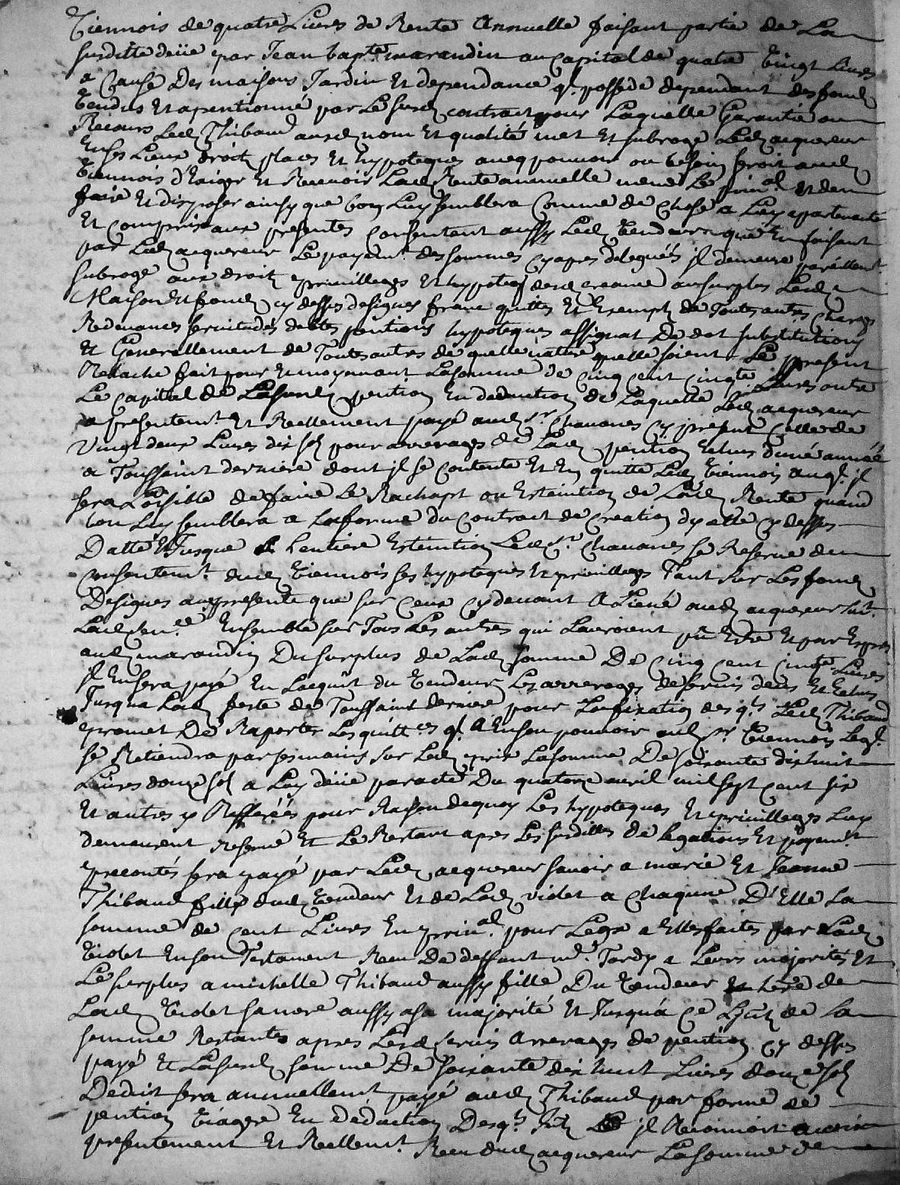 Tiennois de quatre Livres de Rente Annuelle faisant partie de La
susditte deüe par Jean bapte. marandin au capital de quatre vingt Livres
a Cause Des maisons Jardin Et dependance ql. possede dependant des fond
vendus Et apentionné par Le susd contract pour Laquelle Garantie ou
Recours Led Thibaud aud nom Et qualité met Et subroge Led acquereur
En ses Lieux droit places Et hypoteques avec pouvoir ou besoin seroit aud
Tiennois d'Exiger Et Recevoir Lad Rente annuelle meme Le prinal. Et den
faire Et disposer ainsy que bon Luy semblera Comme de Chose a Luy apartenante
Et compris aux presentes consentant aussy Led vendeur qué En faisant
par Led acquereur Le payemt. des sommes cy apres deleguées jl demeure pareillemt.
subrogé aux droit privilleges Et hypoteq des creance au surplus Lesd
Maison Et fond cy dessus designés franc quittes Et Exempt de Touts autres charges
Redevances servitudes debtes pentions hypoteques assignat De dot substitutions
Et Generallement de Touts autres de quelle nature quelle soient Le present
Relache fait pour Et moyenant La somme de Cinq cent cinqte. Livres outre
Le capital de La susd pention En deduction de Laquelle Led acquereur
a presentemt. Et Reellement payé aud sr. Chavanes cy present Celle de
vingt deux Livres dix sol pour arrerages de Lad pention Echus d'une année
a Toussaint derniere dont jl se contente Et En quitte Led Tiennois auql. jl
sera Loisible de faire Le Rachapt ou Extention de Lad Rente quand
bon Luy semblera a La forme du Contract de Creation dycelle cy dessus
Datté Et Jusque a Lentiere Extention Led sr. Chavanes se Reserve du
consentemt. dud Tiennois ses hypoteques Et privilleges Tant sur Les fond
Designés aux presente que sur Ceux cy devant Aliené aud acquereur
Ensemble sur Tous Les autres qui Lauroient pû Estre Et par Exprès
aud marandin Du surplus de Lad somme De Cinq cent cinqte. Livres
jl En sera payé En Lacquit du vendeur Les arrerages de servis deus Et Echus
Jusqua Lad feste de Toussaint derniere pour des qs. Led Thibaud
promet De Raporter Les quittces ql. A En son pouvoir aud sr. Tiennois Leql.
se Retiendra par ses mains sur Led prix La somme De soixante dix huit
Livres douze sol a Luy deüe par acte Du quatorze avril mil sept cent six
Et autres y Refferées pour Raison de quoy Les hypoteques Et privilleges Luy
demeurent Reservé Et Le Restant apres Les susdittes delegations Et payemt.
precontés sera payé par Led acquereur savoir a marie Et Jeanne
Thibaud filles dud vendeur Et de Lad violet a Chaqune D'Elle La
somme de cent Livres En prinal. pour Legs a Elles faites par Lad
violet En son Testament Receu De deffunt me. Tardy a Leurs majorités Et
Le surplus a michelle Thibaud aussy fille Du vendeur
Lad violet sa mere aussy a sa majorité Et Jusqua Ce de La
somme Restante apres Lesd servis Arrerages de pention cy dessus
payé Et La susd somme De soixante dix huit Livres douze sol
Deduit sera annuellemt. payé aud Thibaud par forme de
pention viagere En deduction Desqs. jl Reconnoit avoir
presentement Et Reellemt. Receu dud acquereur La somme de